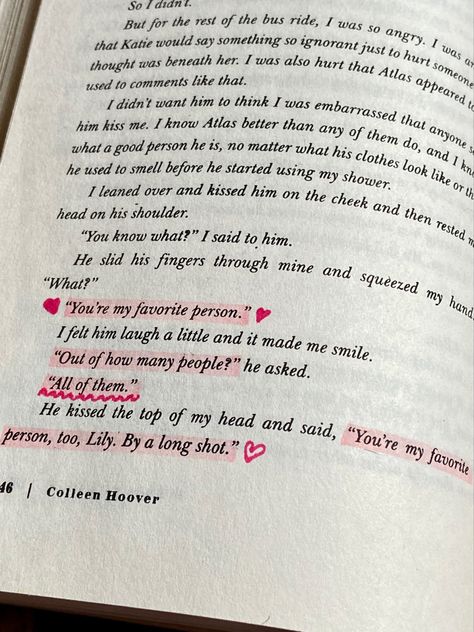 So I didn't.
But for the rest of the bus ride, I was so angry. I was
that Katie would say something so ignorant just to hurt someone
thought was beneath her. I was also hurt that Atlas appeared
used to comments like that.
I didn't want him to think I was embarrassed that anyone
him kiss me. I know Atlas better than any of them do, and I
what a good person he is, no matter what his clothes look like or
he used to smell before he started using my shower.
I leaned over and kissed him on the cheek and then rested
head on his shoulder.
"You know what?" I said to him.
He slid his fingers through mine and squeezed my hand.
"What?"
"You're my favorite person."
I felt him laugh a little and it made me smile.
"Out of how many people?" he asked.
"All of them."
He kissed the top of my head and said, "You're my favorite
person, too, Lily. By a long shot."
46 | Colleen Hoover